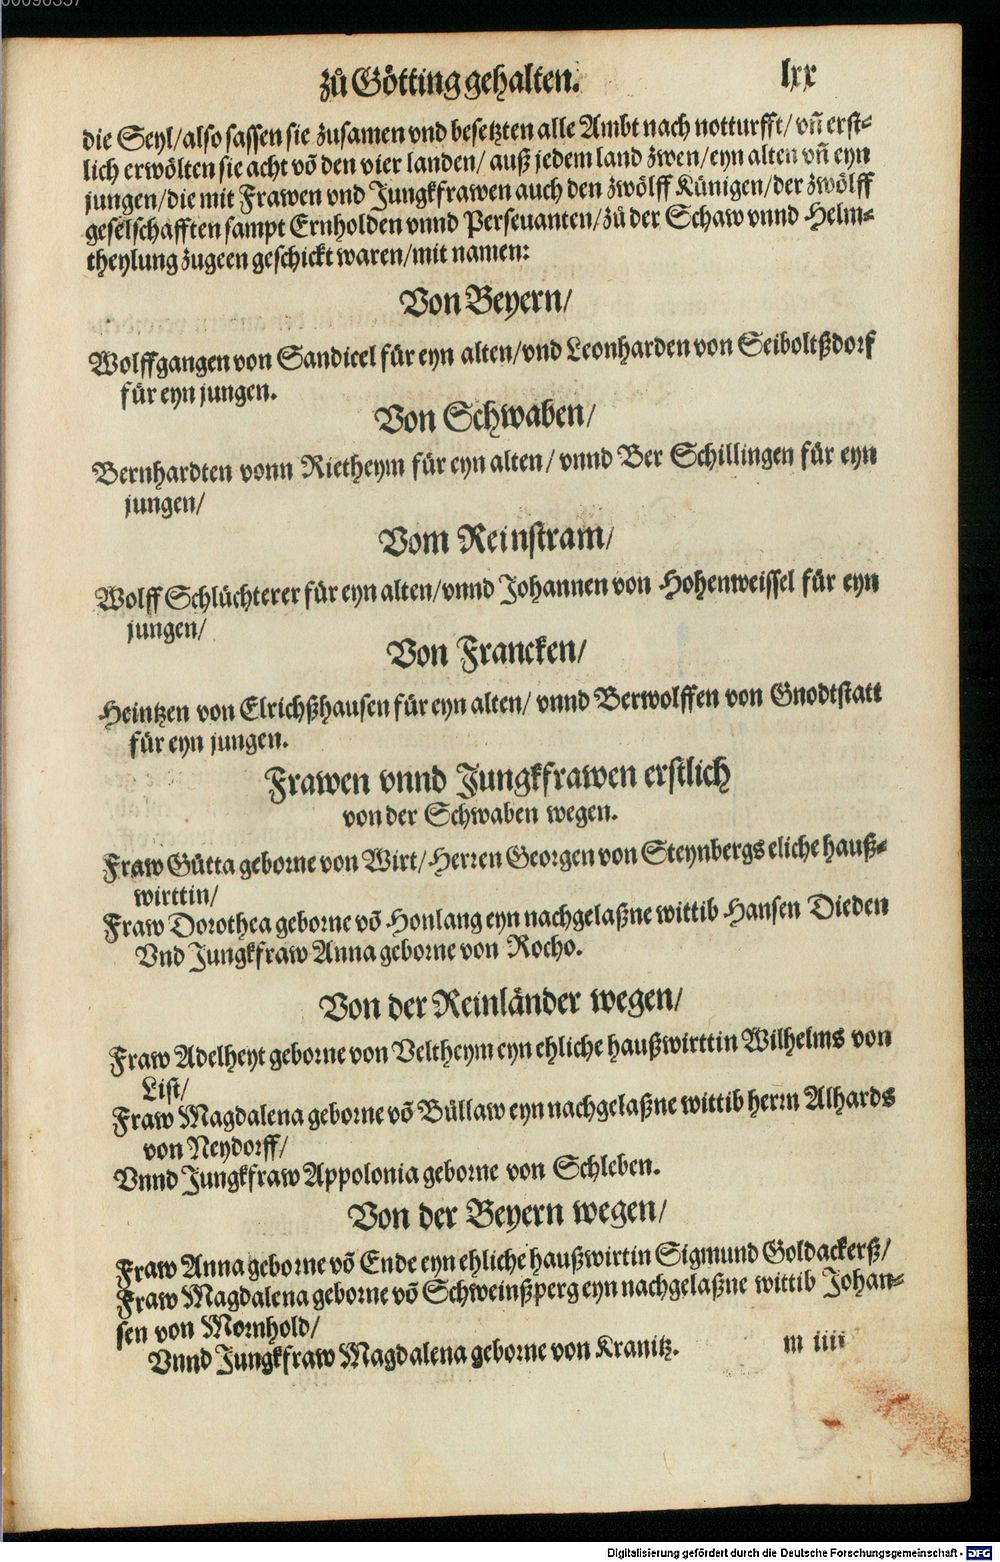 00090357
zů Götting gehalten. lxx
die Seyl/also sassen sie zusamen vnd besetzten alle Ambt nach notturfft/ vñ erst-
lich erwölten sie acht võ den vier landen/ auß jedem land zwen/eyn alten vñ eyn
jungen/die mit Frawen vnd Jungkfrawen auch den zwölff Künigen/der zwölff
geselschafften sampt Ernholden vnnd Perseuanten/zů der Schaw vnnd Helm-
theylung zugeen geschickt waren/mit namen:
Von Beyern/
Wolffgangen von Sandicel für eyn alten/vnd Leonharden von Seiboltßdorf
für eyn jungen.
Von Schwaben/
Bernhardten vonn Rietheym für eyn alten/ vnnd Ber Schillingen für eyn
jungen/
Vom Reinstram/
Wolff Schlüchterer für eyn alten/vnnd Johannen von Hohenweissel für eyn
jungen/
Von Francken/
Heintzen von Elrichßhausen für eyn alten/ vnnd Berwolffen von Gnodtstatt
für eyn jungen.
Frawen vnnd Jungkfrawen erstlich
von der Schwaben wegen.
Fraw Gütta geborne von Wirt/Herren Georgen von Steynbergs eliche hauß-
wirttin/
Fraw Dorothea geborne võ Honlang eyn nachgelaßne wittib Hansen Dieden
Vnd Jungkfraw Anna geborne von Rocho.
Von der Reinländer wegen/
Fraw Adelheyt geborne von Veltheym eyn ehliche haußwirttin Wilhelms von
List/
Fraw Magdalena geborne võ Büllaw eyn nachgelaßne wittib herrn Alhards
von Neydorff/
Vnnd Jungkfraw Appolonia geborne von Schleben.
Von der Beyern wegen/
Fraw Anna geborne võ Ende eyn ehliche haußwirtin Sigmund Goldackerß/
Fraw Magdalena geborne võ Schweinßperg eyn nachgelaßne wittib Johan-
sen von Mornhold/
Vnnd Jungkfraw Magdalena geborne von Kranitz. m iiii
Digitalisierung gefördert durch die Deutsche Forschungsgemeinschaft - DFG